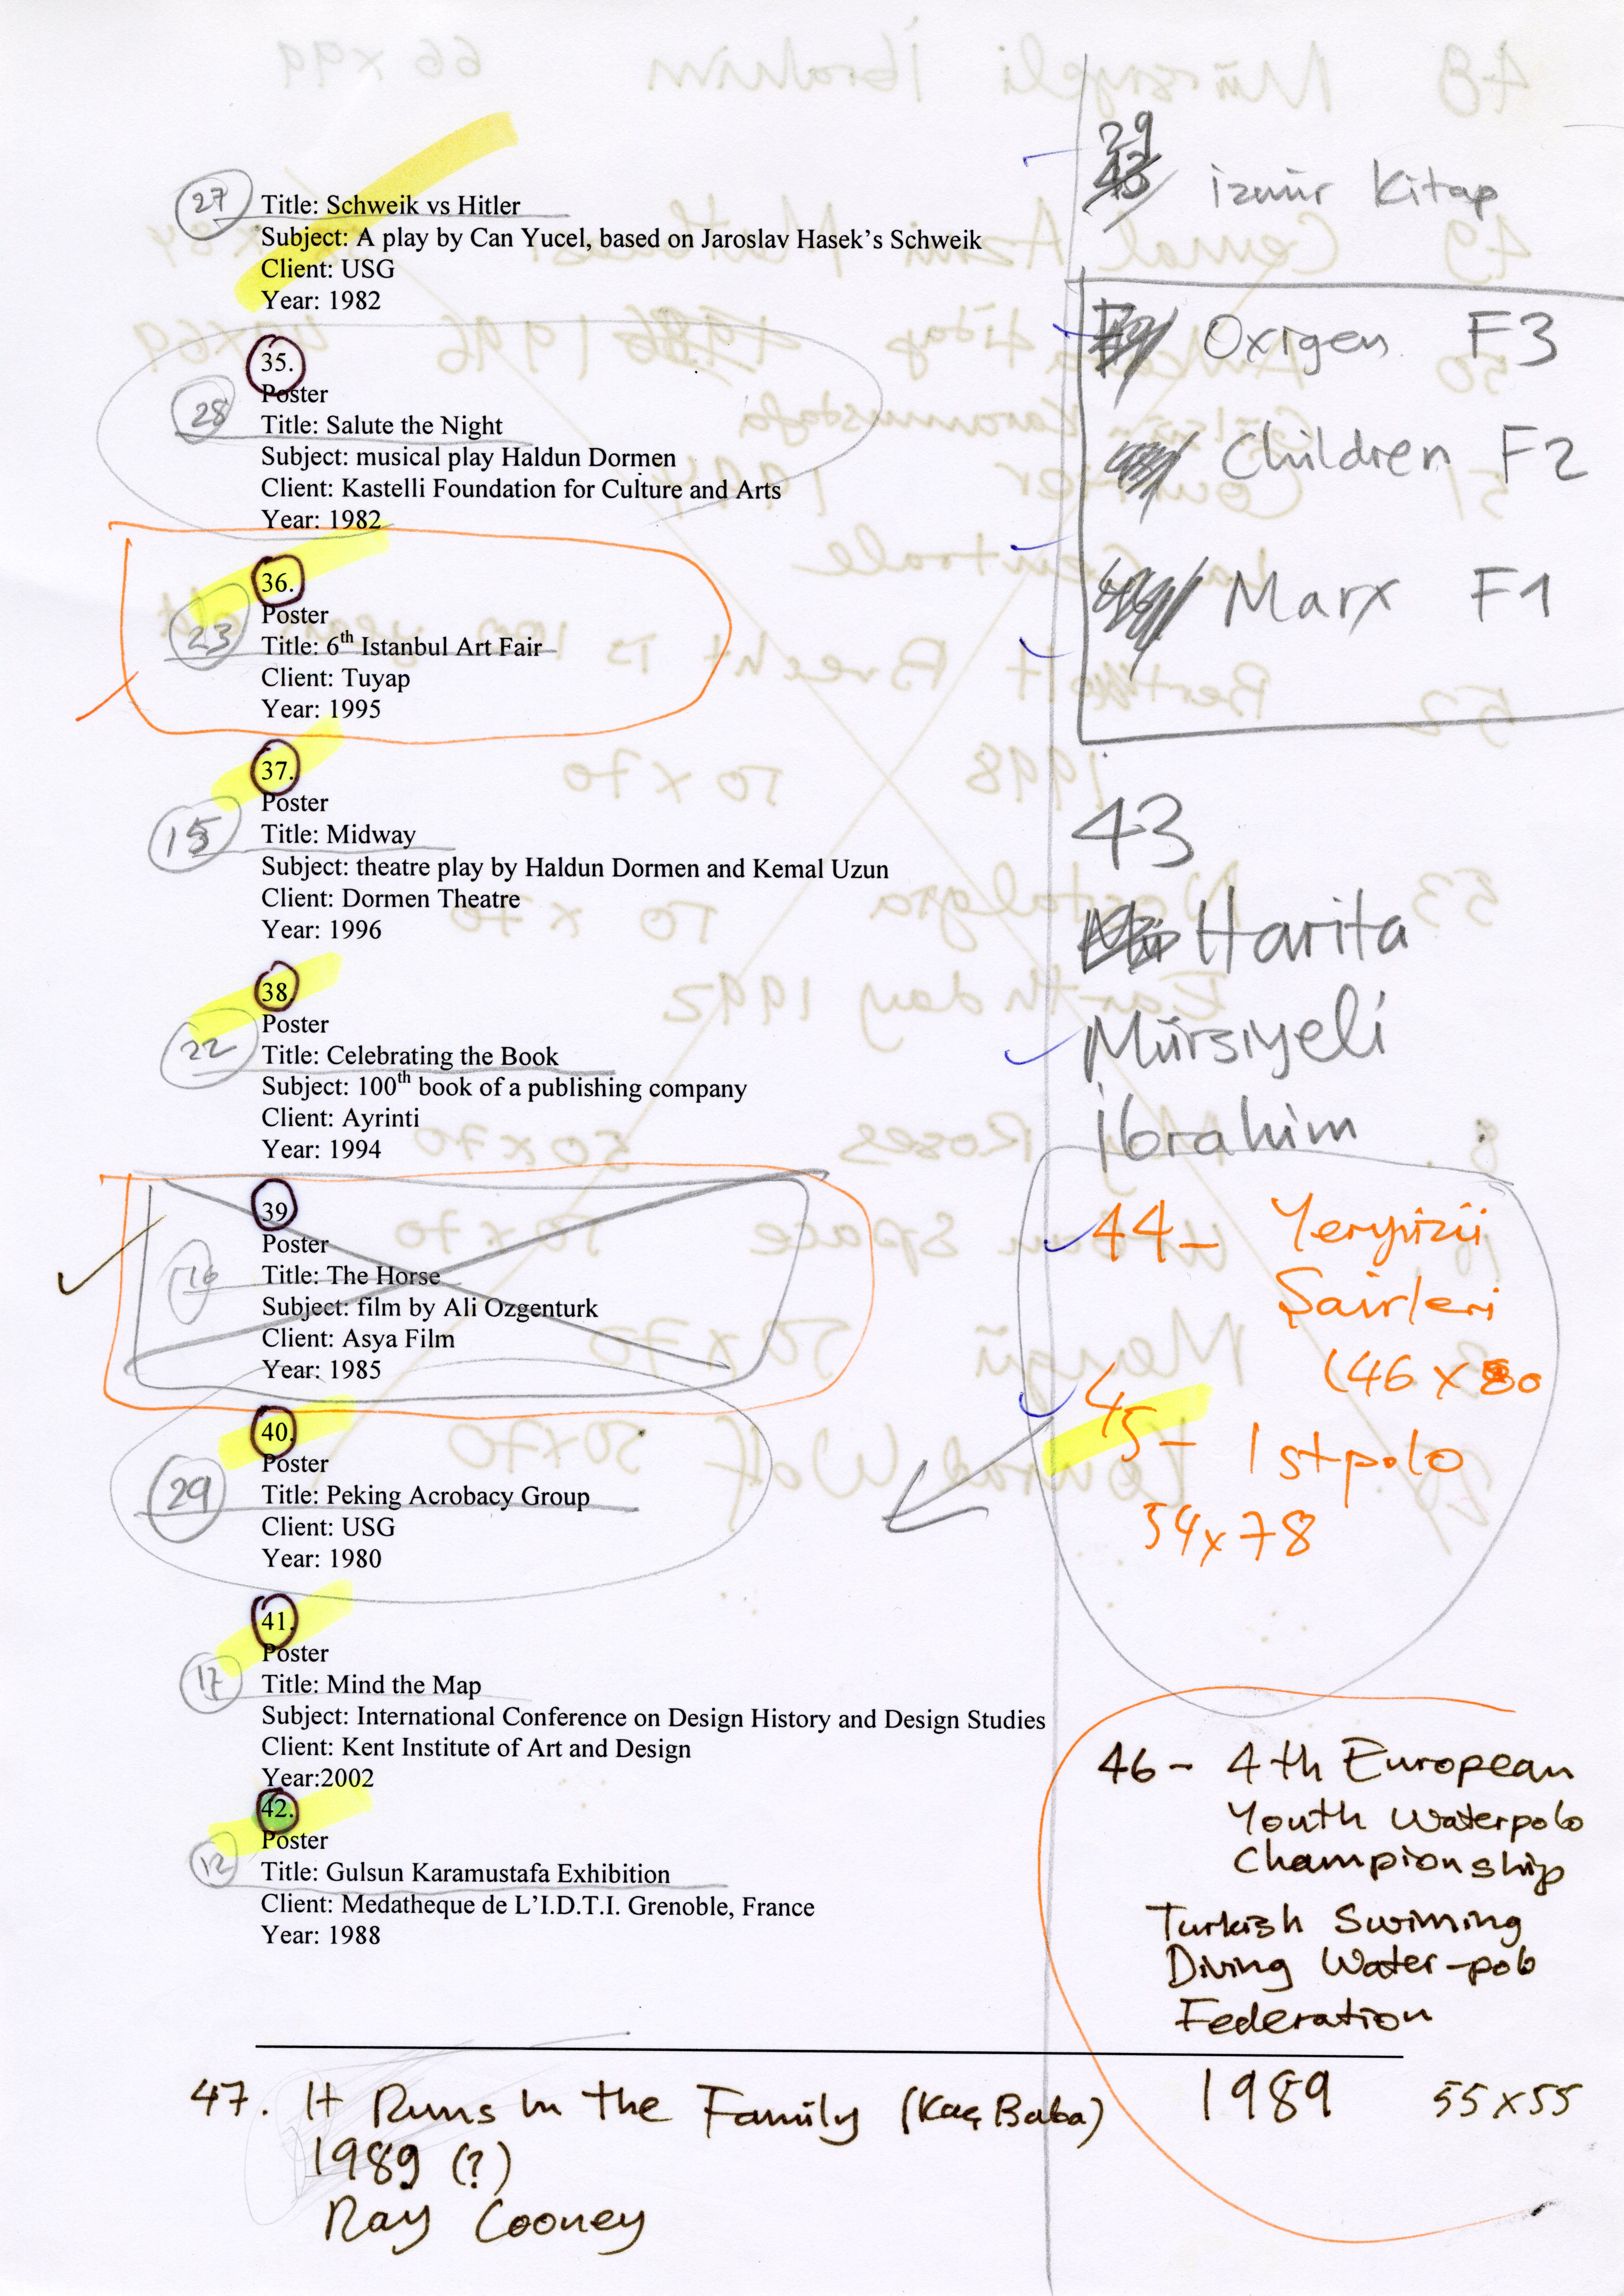 27
Title: Schweik vs Hitler
Subject: A play by Can Yucel, based on Jaroslav Hasek's Schweik
Client: USG
Year: 1982
35.
Poster
28
Title: Salute the Night
Subject: musical play Haldun Dormen
Client: Kastelli Foundation for Culture and Arts
Year: 1982
36.
Poster
23
Title: 6th Istanbul Art Fair
Client: Tuyap
Year: 1995
37.
Poster
15
Title: Midway
Subject: theatre play by Haldun Dormen and Kemal Uzun
Client: Dormen Theatre
Year: 1996
38.
Poster
22
Title: Celebrating the Book
Subject: 100th book of a publishing company
Client: Ayrinti
Year: 1994
39
Poster
16
Title: The Horse
Subject: film by Ali Ozgenturk
Client: Asya Film
Year: 1985
40.
Poster
29
Title: Peking Acrobacy Group
Client: USG
Year: 1980
41.
Poster
17
Title: Mind the Map
Subject: International Conference on Design History and Design Studies
Client: Kent Institute of Art and Design
Year:2002
42.
Poster
12
Title: Gulsun Karamustafa Exhibition
Client: Medatheque de L'I.D.T.I. Grenoble, France
Year: 1988
47. It Runs in the Family (Kaç Baba)
1989 (?)
Ray Cooney
29
izmir Kitap
Oxigen F3
Children F2
Marx F1
43
Harita
Mürsiyeli
İbrahim
44- Yeryüzü
Şairleri
(46 x 80
45- 1st polo
54x78
46- 4th European
Youth Waterpolo
Championship
Turkish Swiming
Diving Water-polo
Federation
1989 55x55